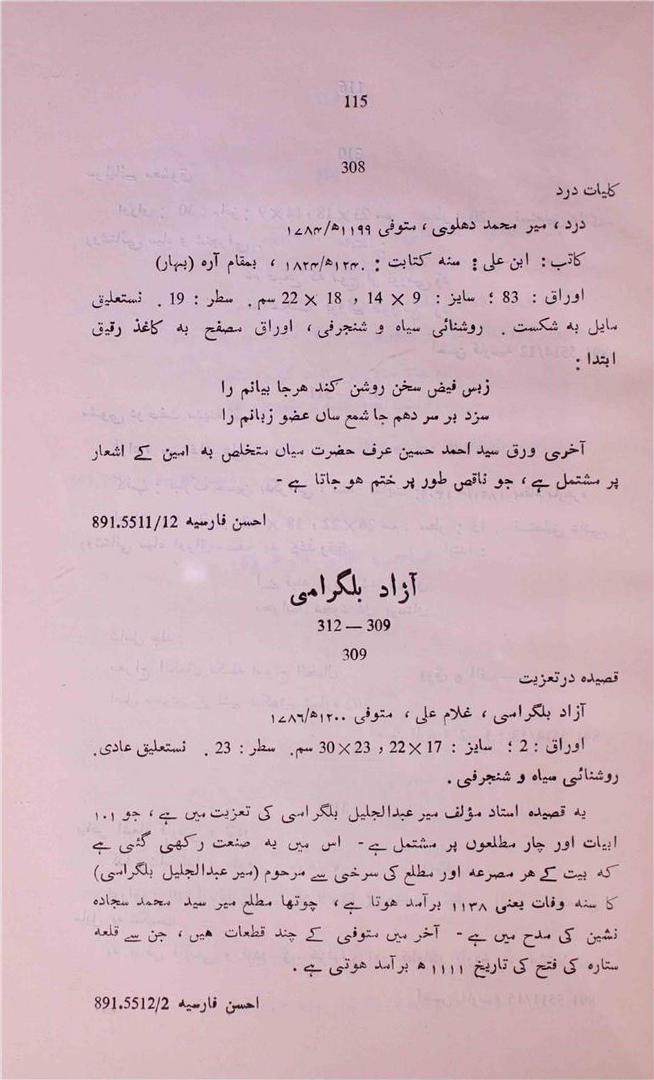 115
308
کلیات درد
درد، میر محمد دھلوی، متوفی ۱۱۹۹ھ/۱۷۸۴
کاتب: ابن علی؛ سنہ کتابت: ۱۲۴۰ھ/۱۸۲۴، بمقام آرہ (بہار)
اوراق: 83؛ سایز: 9 × 14 و 18 × 22 سم. سطر: 19. نستعلیق
مایل بہ شکست. روشنائی سیاہ و شنجرفی، اوراق مصفح بہ کاغذ رقیق
ابتدا:
زبس فیض سخن روشن کند ھرجا بیانم را
سزد بر سر دھم جا شمع ساں عضو زبانم را
آخری ورق سید احمد حسین عرف حضرت میاں متخلص بہ امین کے اشعار
پر مشتمل ہے، جو ناقص طور پر ختم ھو جاتا ہے -
احسن فارسیہ 891.5511/12
آزاد بلگرامی
312 — 309
309
قصیدہ در تعزیت
آزاد بلگرامی، غلام علی، متوفی ۱۲۰۰ھ/۱۷۸۶
اوراق: 2؛ سایز: 17 × 22 و 23 × 30 سم. سطر: 23. نستعلیق عادی.
روشنائی سیاہ و شنجرفی.
یہ قصیدہ استاد مؤلف میر عبدالجلیل بلگرامی کی تعزیت میں ہے، جو ۱۰۱
ابیات اور چار مطلعوں پر مشتمل ہے - اس میں یہ صنعت رکھی گئی ہے
کہ بیت کے ھر مصرعہ اور مطلع کی سرخی سے مرحوم (میر عبدالجلیل بلگرامی)
کا سنہ وفات یعنی ۱۱۳۸ برآمد ھوتا ہے، چوتھا مطلع میر سید محمد سجادہ
نشین کی مدح میں ہے - آخر میں متوفی کے چند قطعات ھیں، جن سے قلعہ
ستارہ کی فتح کی تاریخ ۱۱۱۱ ھ برآمد ھوتی ہے.
احسن فارسیہ 891.5512/2